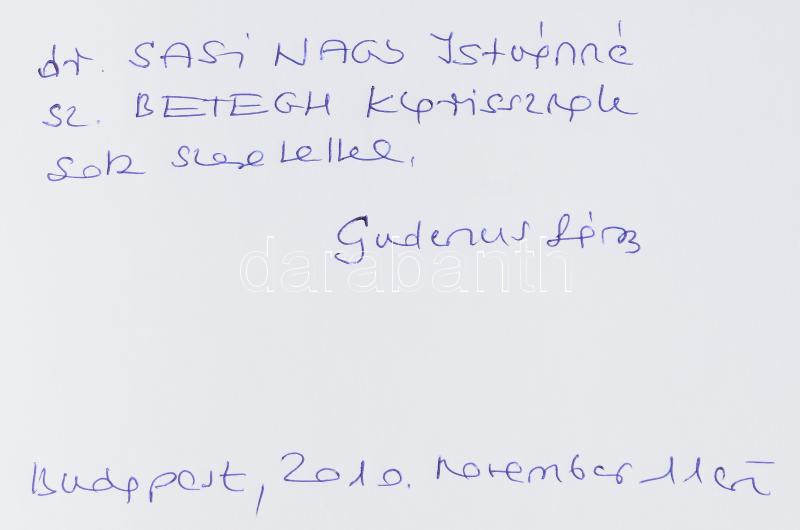 dr. SASi NAGY Istvánné
sz. BETEGH Klarissznak
sok szeretettel,
Gudenus
darabanth
Budapest, 2010. november 11én